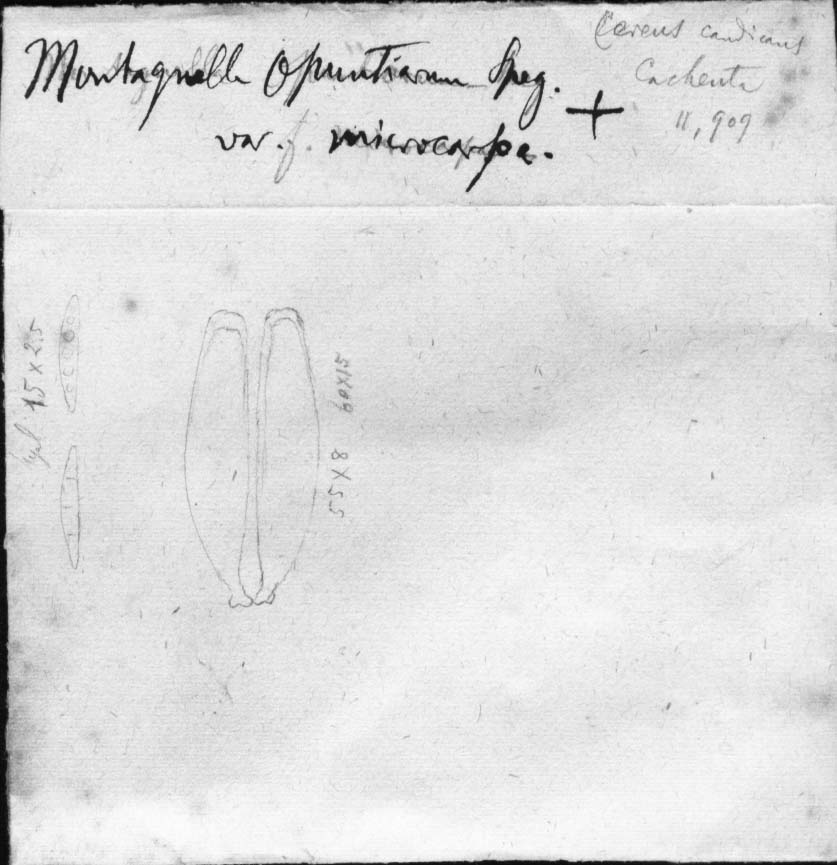 Montagnella Opuntiarum Speg.
var. f. microcarpa.
+
Cereus candicans
Cacheuta
11, 909
15 x 2.5
60x15
55x8